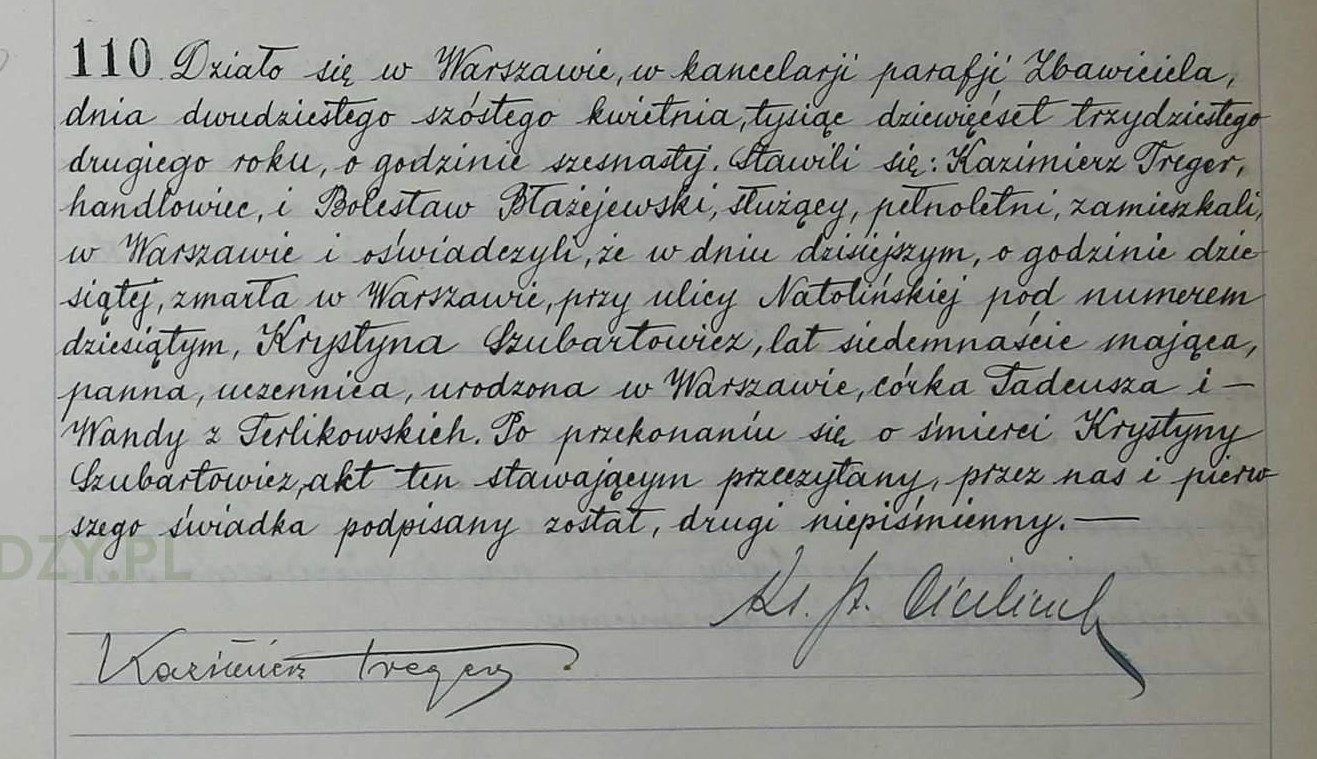 110 Działo się w Warszawie, w kancelarji parafji Zbawiciela,
dnia dwudziestego szóstego kwietnia, tysiąc dziewięćset trzydziestego
drugiego roku, o godzinie szesnastej. Stawili się: Kazimierz Treger,
handlowiec, i Bolesław Błażejewski, służący, pełnoletni, zamieszkali,
w Warszawie i oświadczyli, że w dniu dzisiejszym, o godzinie dzie-
siątej, zmarła w Warszawie, przy ulicy Natolińskiej pod numerem
dziesiątym, Krystyna Szubartowicz, lat siedemnaście mająca,
panna, uczennica, urodzona w Warszawie, córka Tadeusza i —
Wandy z Terlikowskich. Po przekonaniu się o śmierci Krystyny
Szubartowicz, akt ten stawającym przeczytany, przez nas i pierw-
szego świadka podpisany został, drugi niepiśmienny. —
DZY.PL
Ks. 
Kazimierz Treger